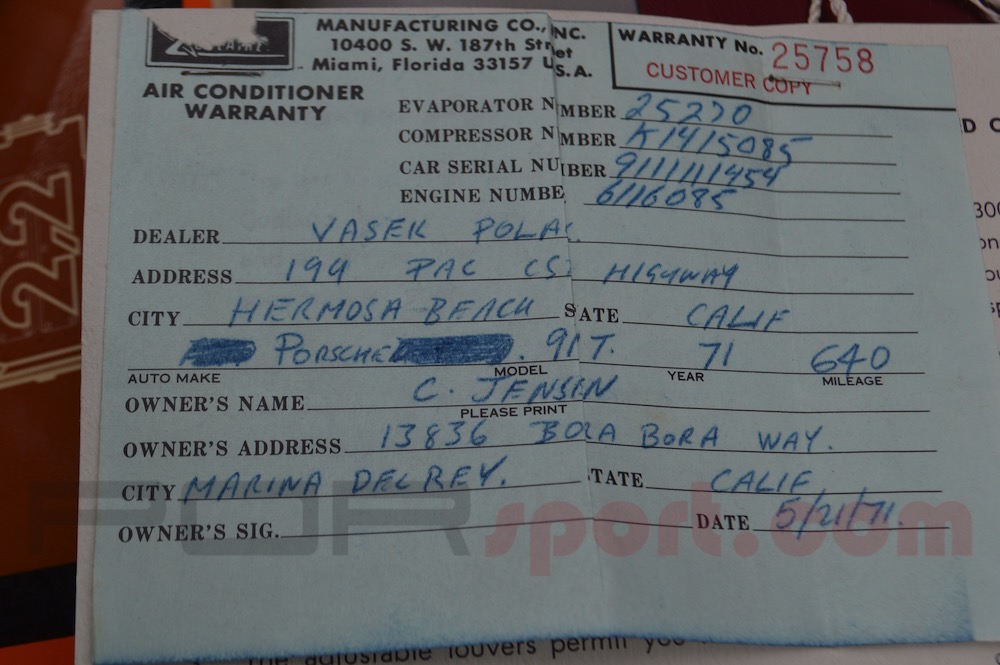 MANUFACTURING CO., INC.
10400 S. W. 187th Street
Miami, Florida 33157 U.S.A.
WARRANTY No. 25758
CUSTOMER COPY
AIR CONDITIONER
WARRANTY
EVAPORATOR NUMBER 25270
COMPRESSOR NUMBER K1415085
CAR SERIAL NUMBER 9111111454
ENGINE NUMBE 6116085
DEALER VASEK POLAC
ADDRESS 199 PAC CST HIGHWAY
CITY HERMOSA BEACH STATE CALIF
PORSCHE 911T. 71 640
AUTO MAKE MODEL YEAR MILEAGE
OWNER'S NAME C. JENSEN
PLEASE PRINT
OWNER'S ADDRESS 13836 BORA BORA WAY.
CITY MARINA DEL REY. STATE CALIF
OWNER'S SIG. DATE 5/21/71.
PORsport.com
2.2
D C
300
the adjustable louvers permit you